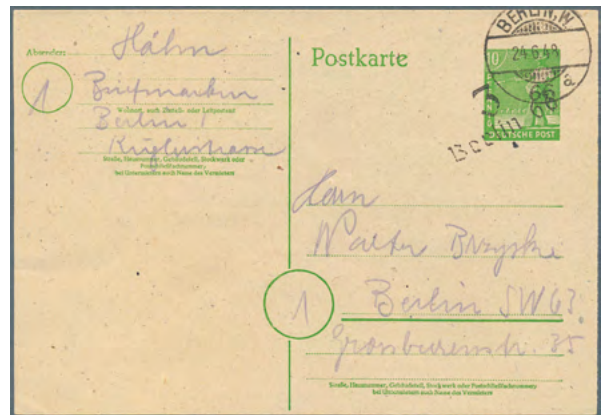 Absender:
Hähn
1
Briefmarken
Wohnort, auch Zustell- oder Leitpostamt
Berlin 1
Straße, Hausnummer, Gebäudeteil, Stockwerk oder
Postschließfachnummer,
bei Untermietern auch Name des Vermieters
Postkarte
BERLIN, W.
24.6.48
a
10
66
66
DEUTSCHE POST
Herrn
Walter
1
Berlin SW
35
Straße, Hausnummer, Gebäudeteil, Stockwerk oder Postschließfachnummer
bei Untermietern auch Name des Vermieters